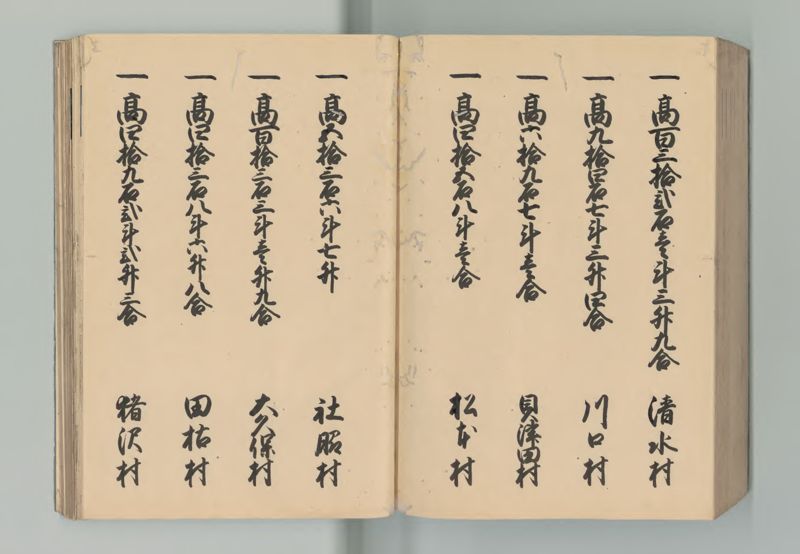 一 高百三拾弐石壱斗三升九合 清水村
一 高九拾四石七斗三升四合 川口村
一 高六拾九石七斗壱合 貝津田村
一 高四拾五石八斗壱合 松本村
一 高五拾三石六斗七升 社村
一 高百拾三石三斗壱升九合 大久保村
一 高四拾三石八斗六升八合 田枯村
一 高四拾九石弐斗弐升三合 猪沢村